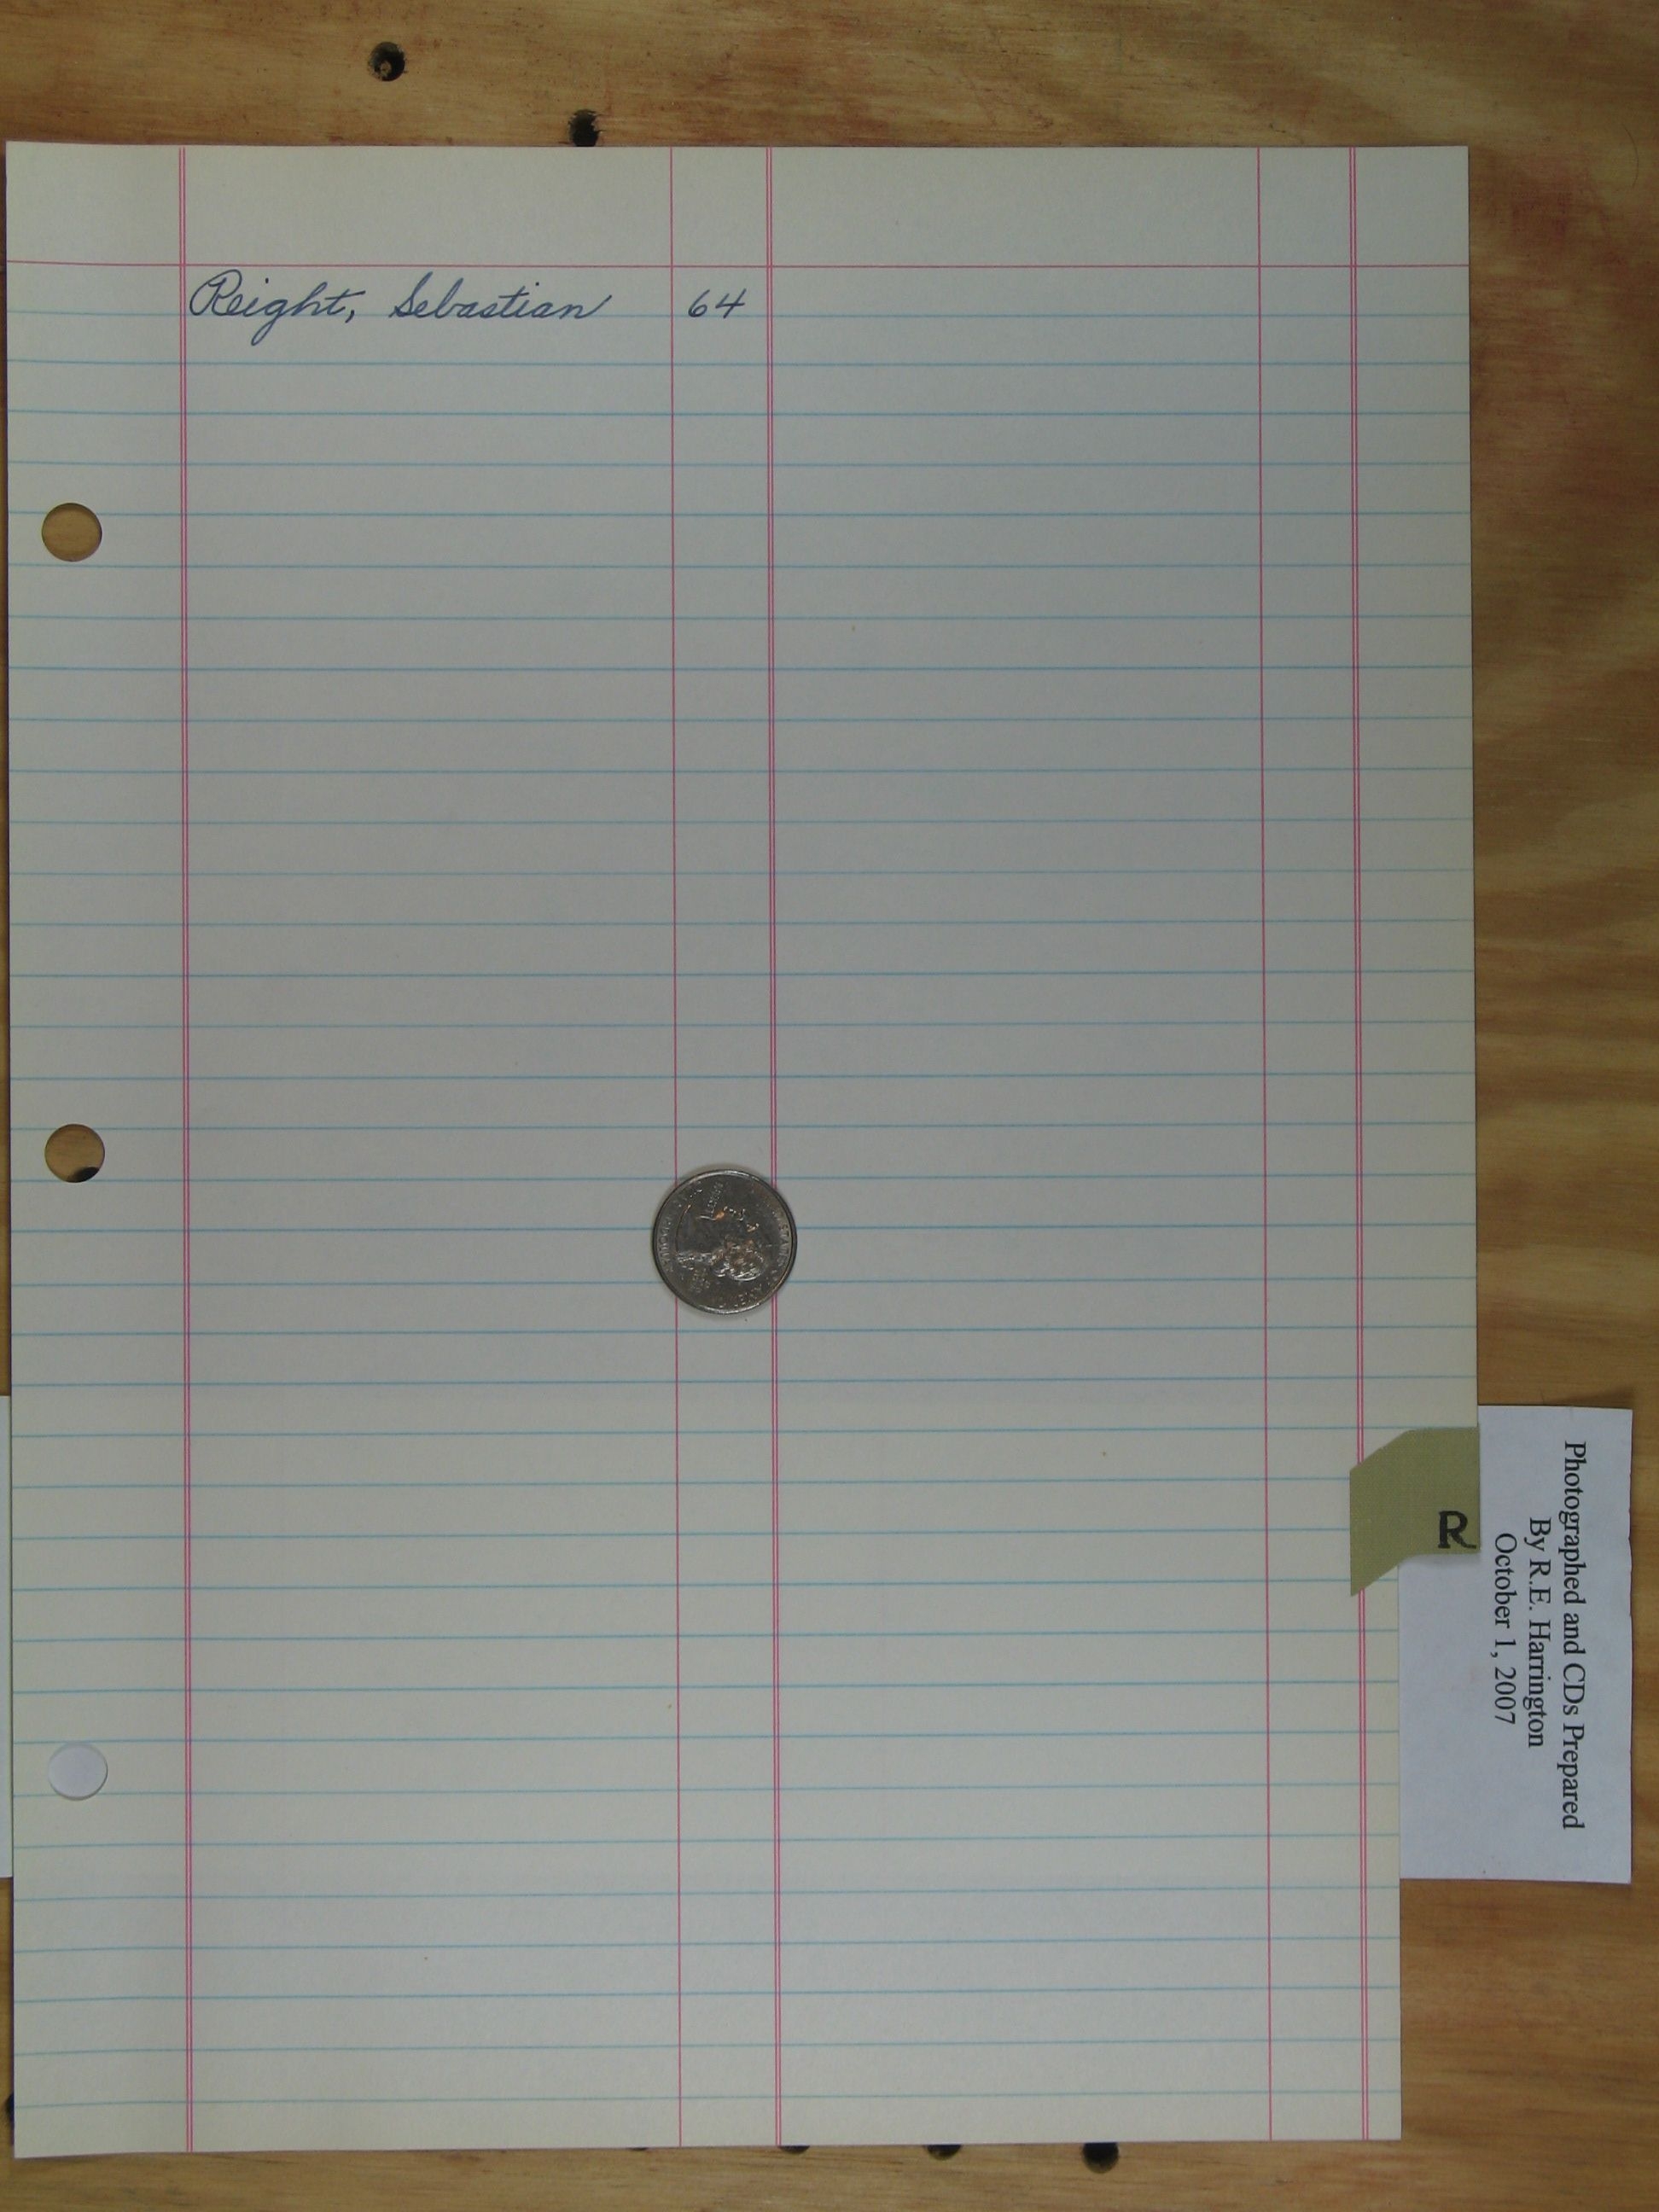 Reight, Sebastian 64
R
Photographed and CDs Prepared
By R.E. Harrington
October 1, 2007